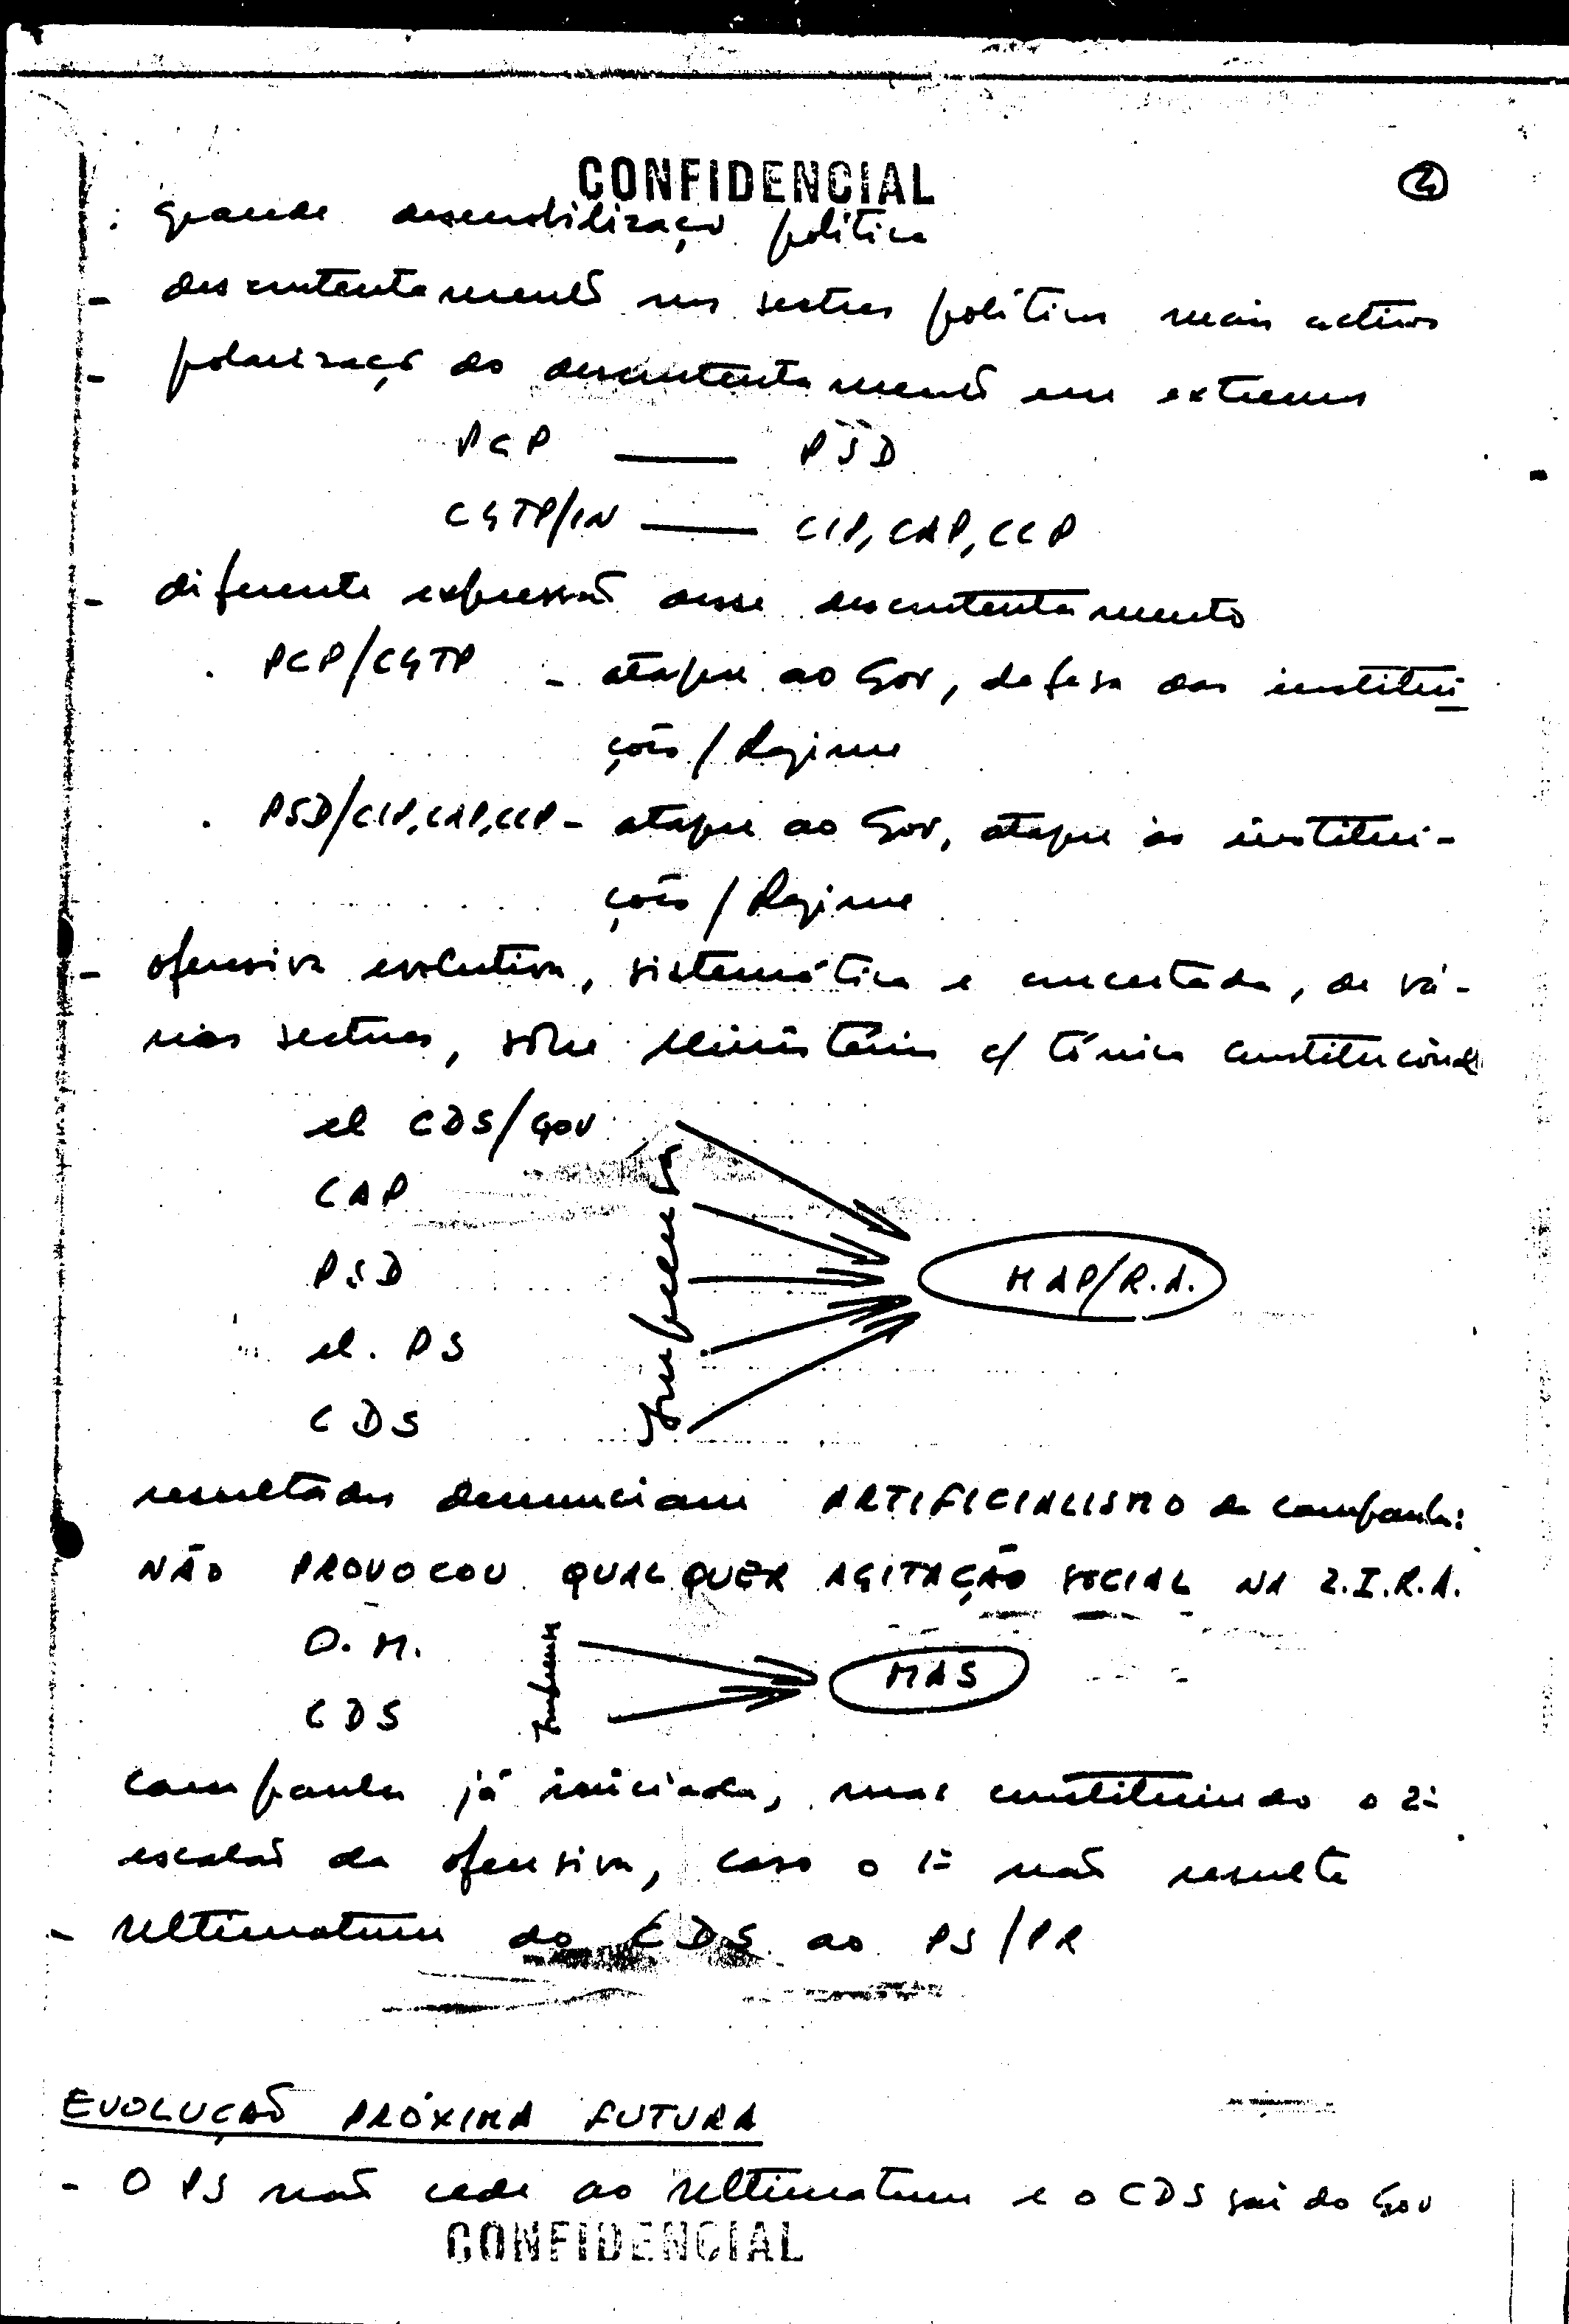 CONFIDENCIAL
2
- grande desmobilização política
- descontentamento nos sectores políticos mais activos
- polarização do descontentamento em extremos
PCP —— PSD
CGTP/IN —— CIP, CAP, CCP
- diferente expressão desse descontentamento
. PCP/CGTP - ataque ao Gov, defesa das institui
ções / Regime
. PSD/CIP, CAP, CCP - ataque ao Gov, ataque às institui-
ções / Regime
- ofensiva evolutiva, sistemática e concertada, de vá-
rios sectores, sobre Ministérios c/ tónica constitucional
el CDS/GOV
CAP
PSD
el. PS
CDS
Imprensa
MAP/R.A.
resultados denunciam ARTIFICIALISMO da campanha:
NÃO PROVOCOU QUALQUER AGITAÇÃO SOCIAL NA Z.I.R.A.
O.M.
CDS
Imprensa
MAS
campanha já iniciada, mas constituindo o 2º
escalão da ofensiva, caso o 1º não resulte
- Ultimatum do CDS ao PS/PR
EVOLUÇÃO PRÓXIMA FUTURA
- O PS não cede ao Ultimatum e o CDS sai do Gov
CONFIDENCIAL